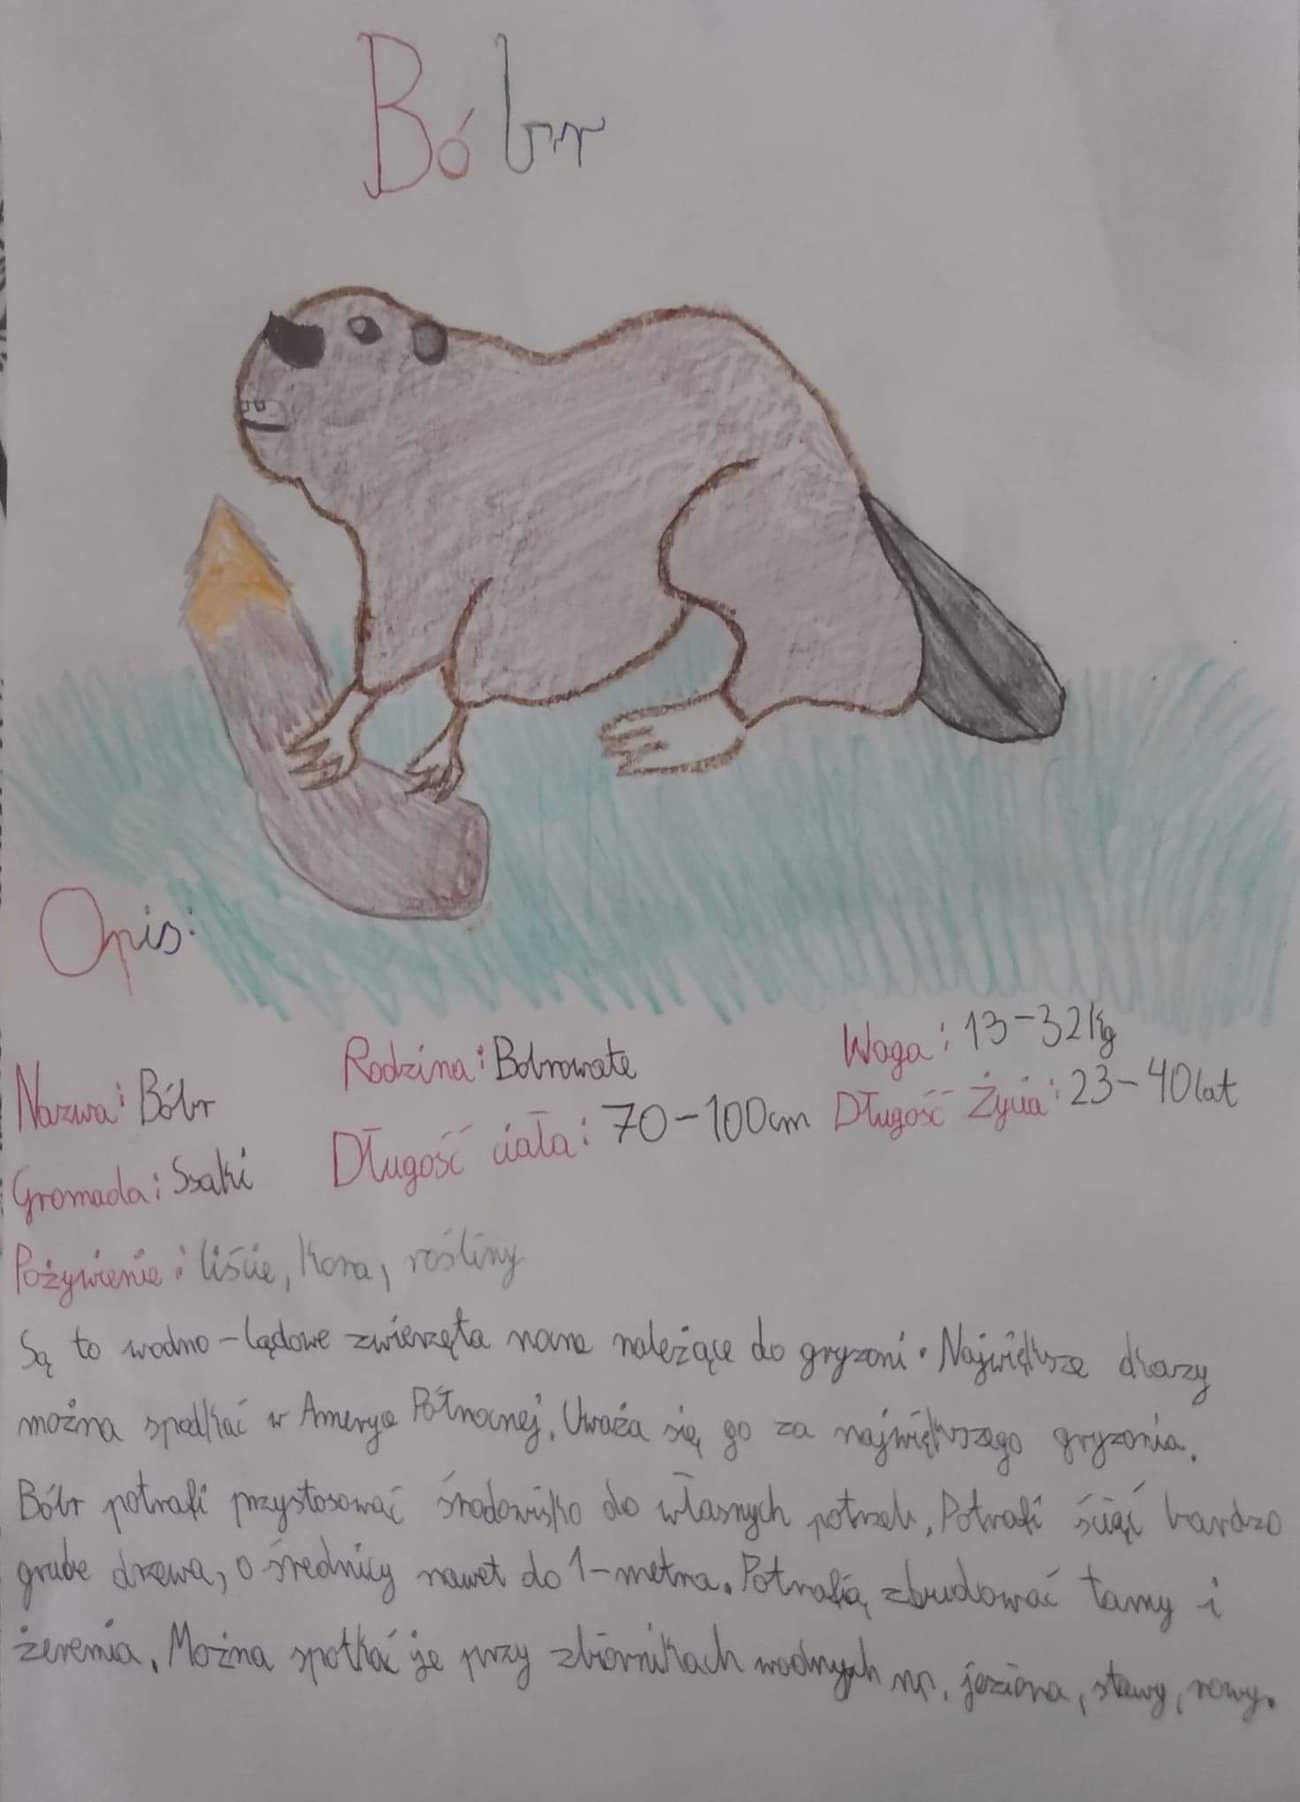 Bóbr
Opis:
Nazwa: Bóbr
Rodzina: Bobrowate
Waga: 13-32kg
Gromada: Ssaki
Długość ciała: 70-100cm
Długość Życia: 23-40lat
Pożywienie: liście, kora, rośliny
Są to wodno-lądowe zwierzęta należące do gryzoni. Największe okazy
można spodkać w Ameryce Północnej. Uważa się go za największego gryzonia.
Bóbr potrafi przystosować środowisko do własnych potrzeb. Potrafi ściąć bardzo
grube drzewa, o średnicy nawet do 1-metra. Potrafią zbudować tamy i
żeremia. Można spotkać je przy zbiornikach wodnych np. jeziora, stawy, rowy.